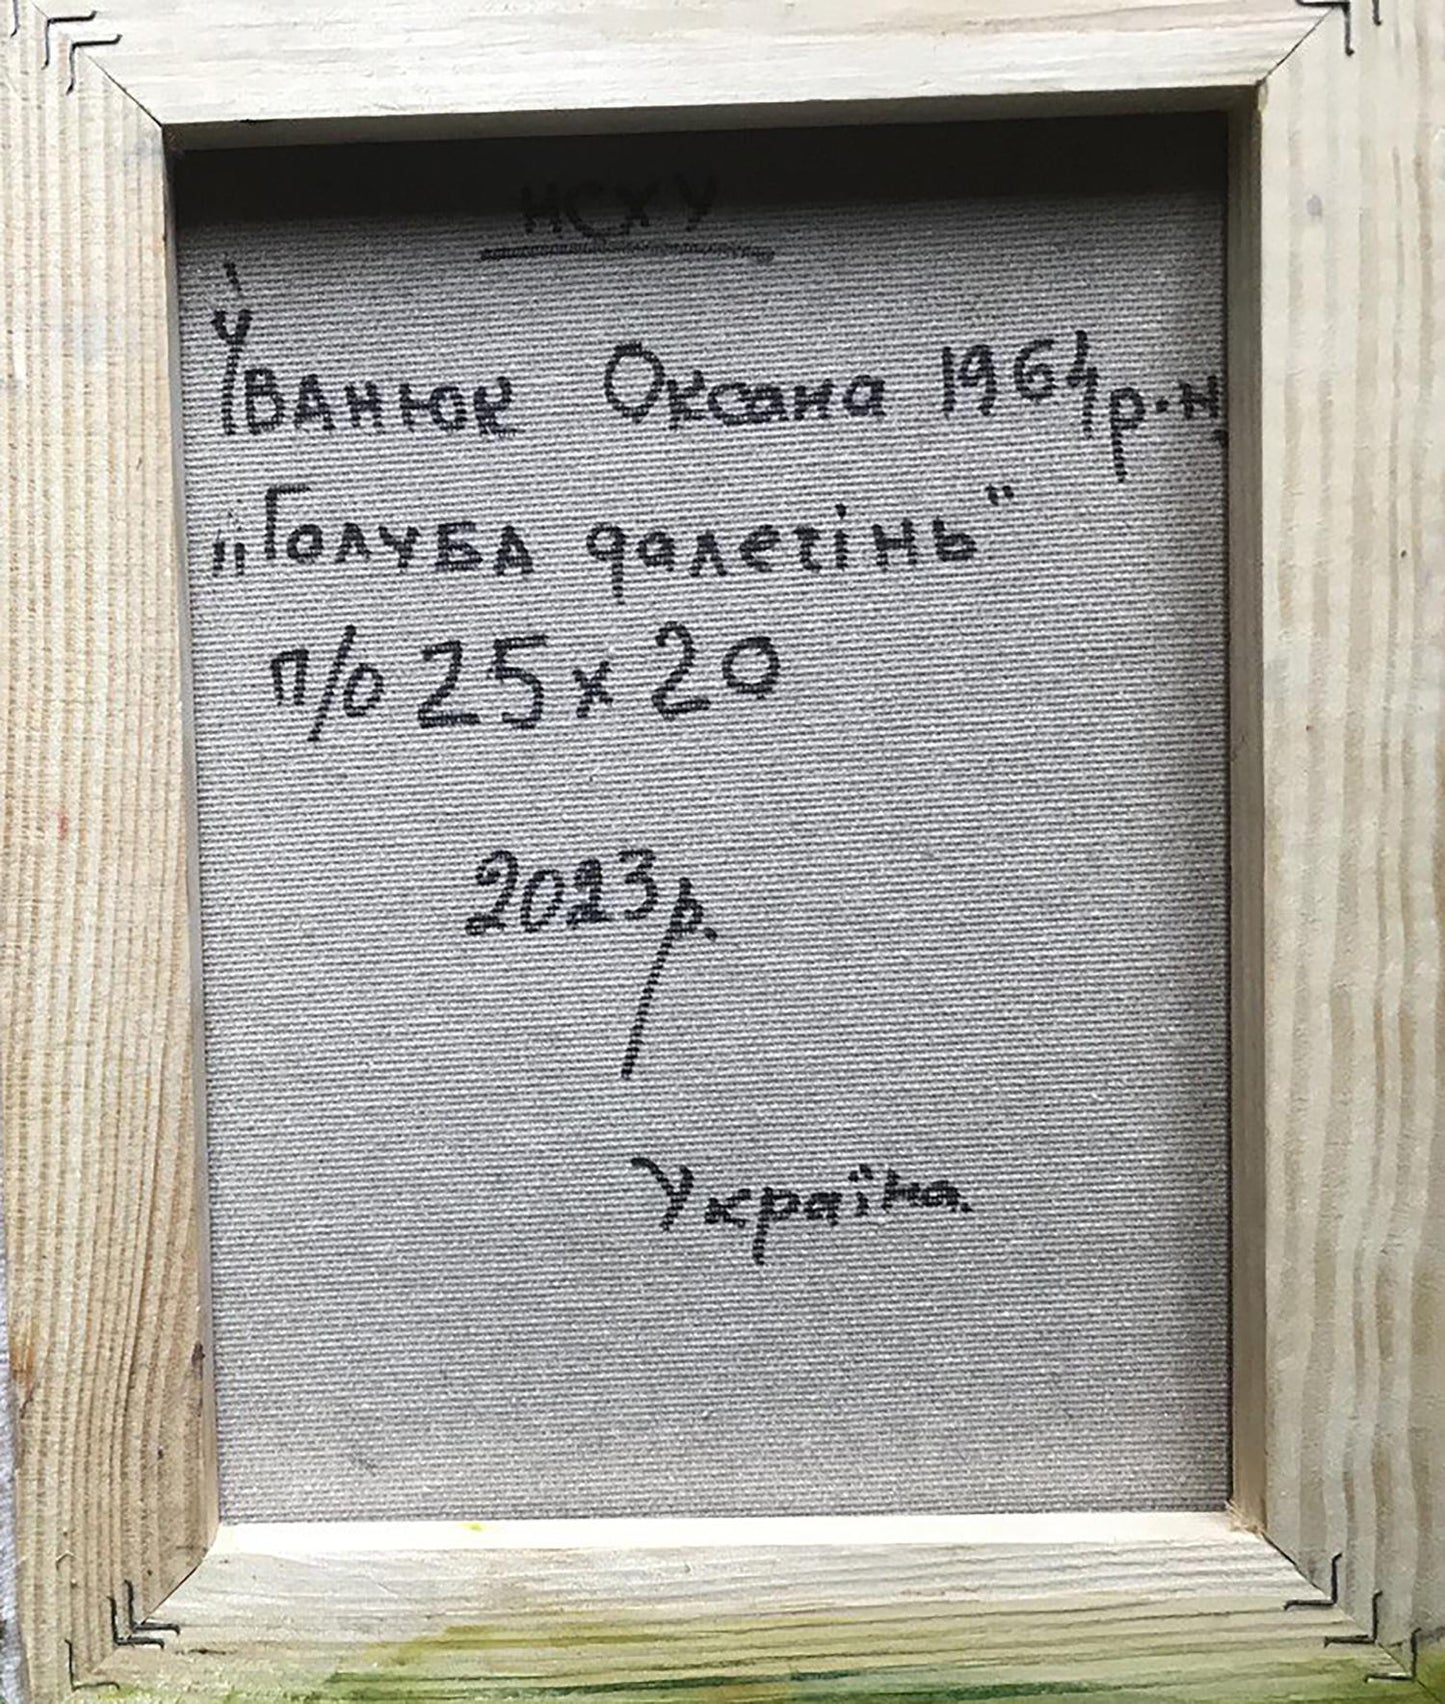 НСХУ
Іванюк Оксана 1964 р.н.
„Голуба далечінь"
п/о 25х20
2023р.
Україна.